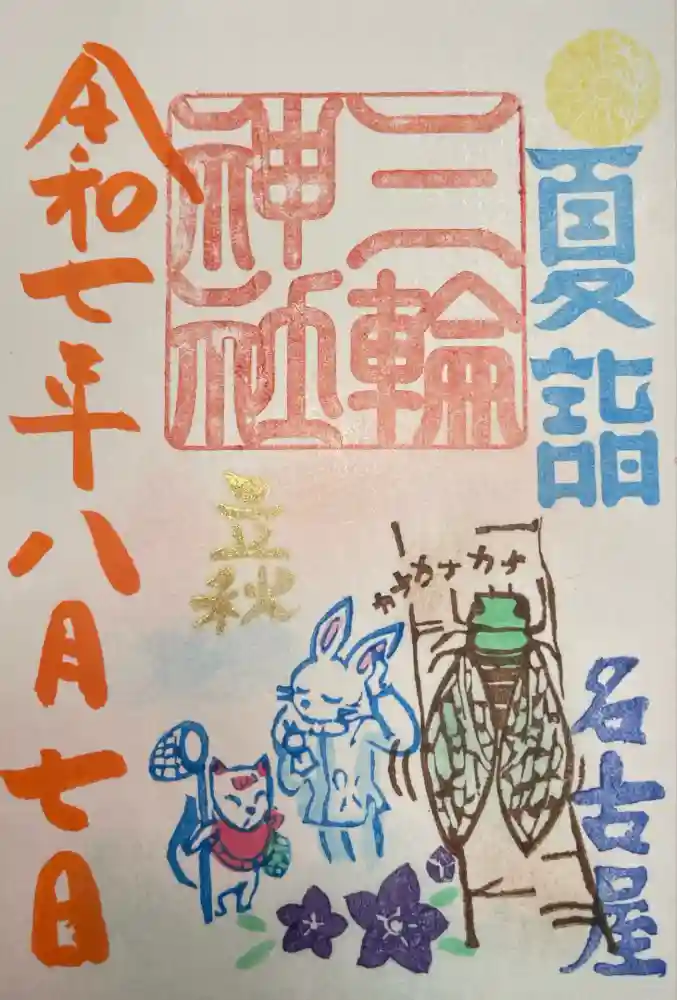 夏詣
三輪
神社
カナカナカナ
立秋
名古屋
令和七年八月七日